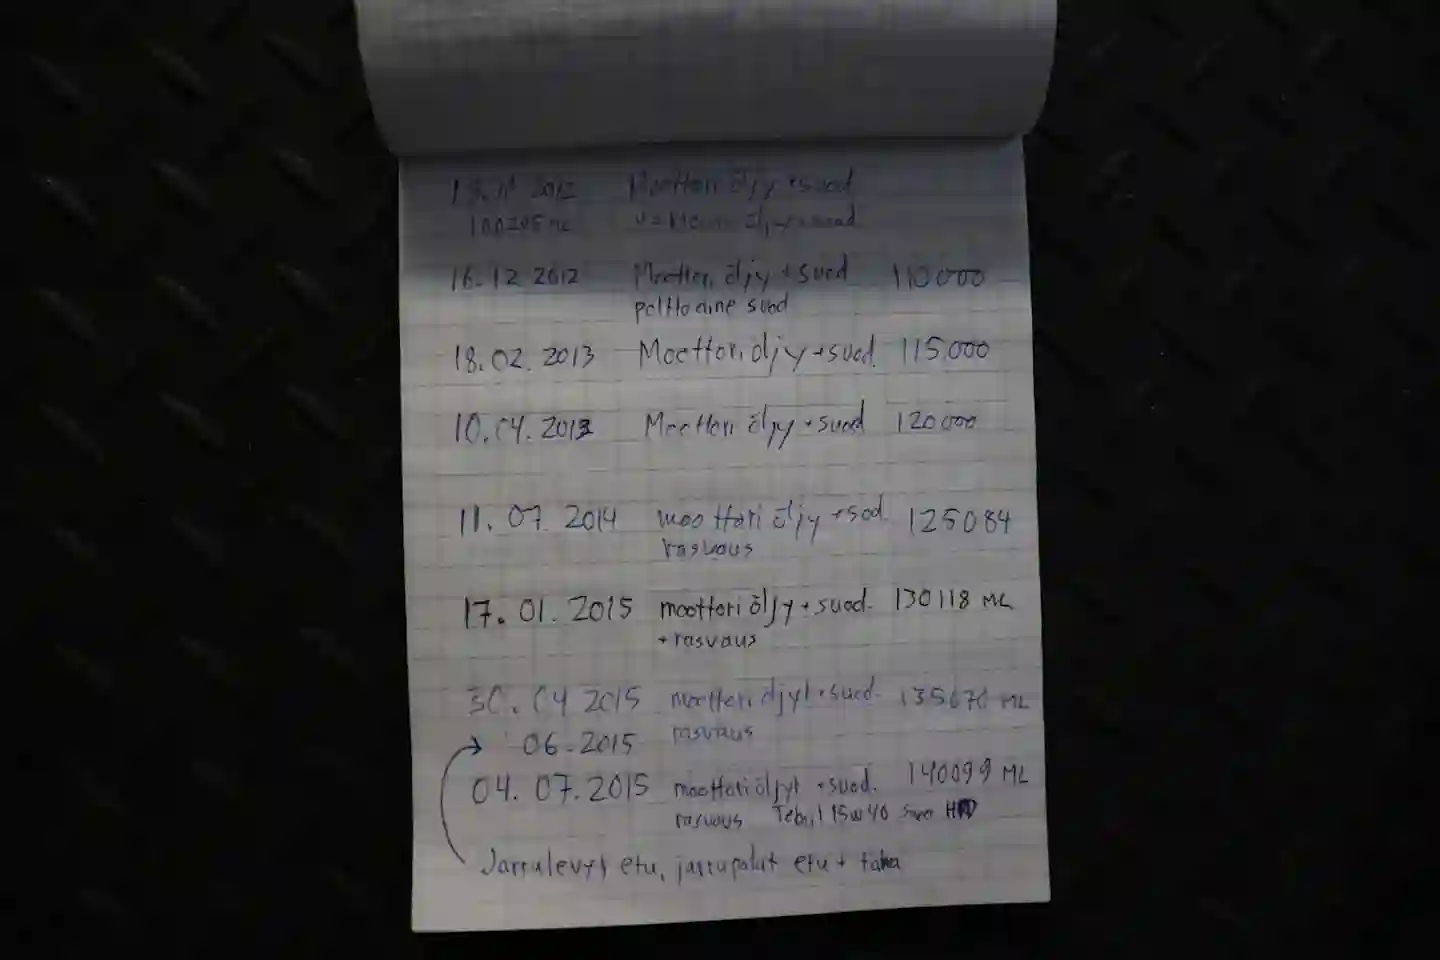 2012 Moottori öljy + suod
öljy + suod
16.12 2012 Moottori öljy + suod 110000
polttoaine suod
18.02.2013 Moottori öljy + suod. 115000
10.04.2013 Moottori öljy + suod 120000
11.07.2014 moottori öljy + sod. 125084
rasvaus
17.01.2015 moottoriöljy + suod. 130118 ML
+ rasvaus
30.04 2015 moottoriöljyt + suod. 135670 ML
06.2015 rasvaus
04.07.2015 moottoriöljyt + suod. 140099 ML
rasvaus Teboil 15w40 Super HD
Jarrulevyt etu, jarrupalat etu + taka